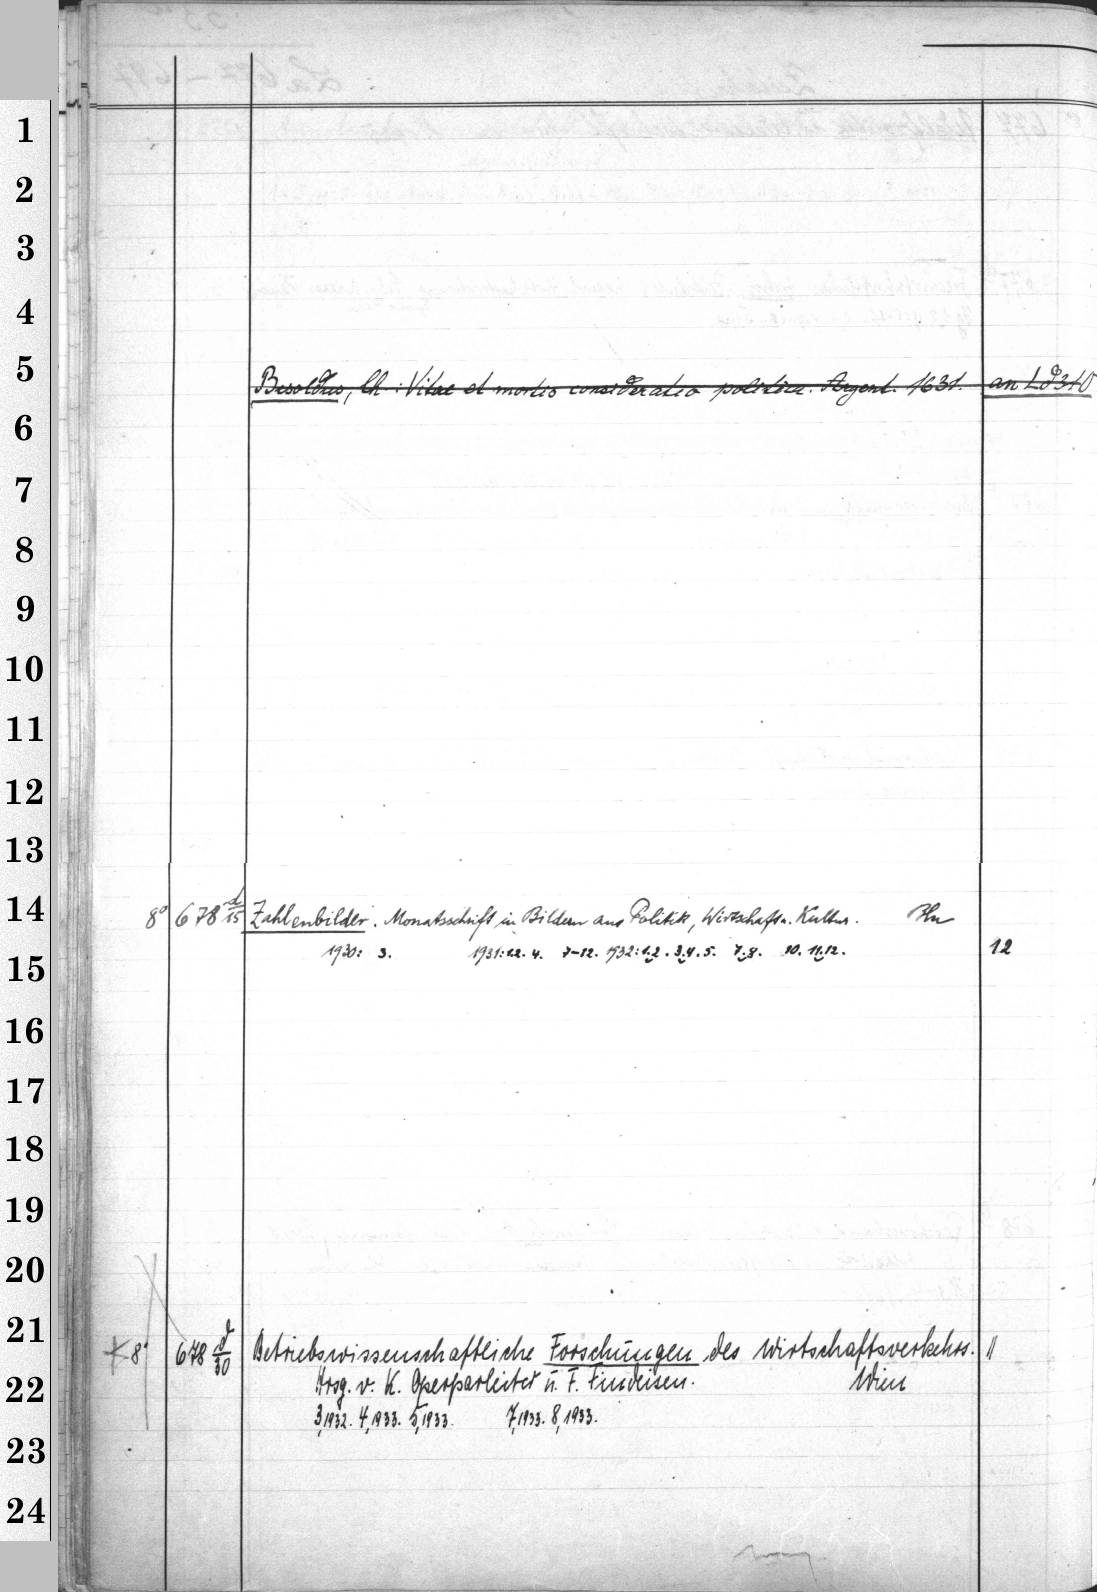 1
2
3
4
5 Besoldus, Ch.: Vitae et mortis consideratio politica. Argent. 1631. an Ld 310
6
7
8
9
10
11
12
13
14 8° 678 d/15 Zahlenbilder. Monatsschrift in Bildern aus Politik, Wirtschaft u. Kultur.
15 1930: 3. 1931: 1.2. 4. 7-12. 1932: 1.2. 3.4. 5. 7.8. 10. 11.12. 12
16
17
18
19
20
21 8° 678 d/30 Betriebswissenschaftliche Forschungen des Wirtschaftsverkehrs.
22 Hrsg. v. K. Oberparleiter u. F. Findeisen. Wien
3,1932. 4,1933. 5,1933. 7,1933. 8,1933.
23
24